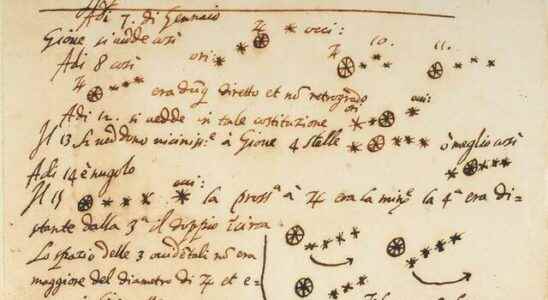 Adì 7. di Gennaio
Gione si vedde così ♃ occi:
ori: ♃ 10. 11.
Adi 8 così
♃ era dūq diretto et nō retrogrado
ori occi:
Adi 12. si vedde in tale costituzione
Il 13 si veddono vicinissᵉ à Gione 4 stelle ò meglio così
Adi 14 è nugolo
Il 15 occi: la prossᵃ à ♃ era la minʳᵉ la 4ᵃ era di=
stante dalla 3ᵃ il doppio circa
Lo spazio delle 3 occidētali nō era
maggiore del diametro di ♃ et e=